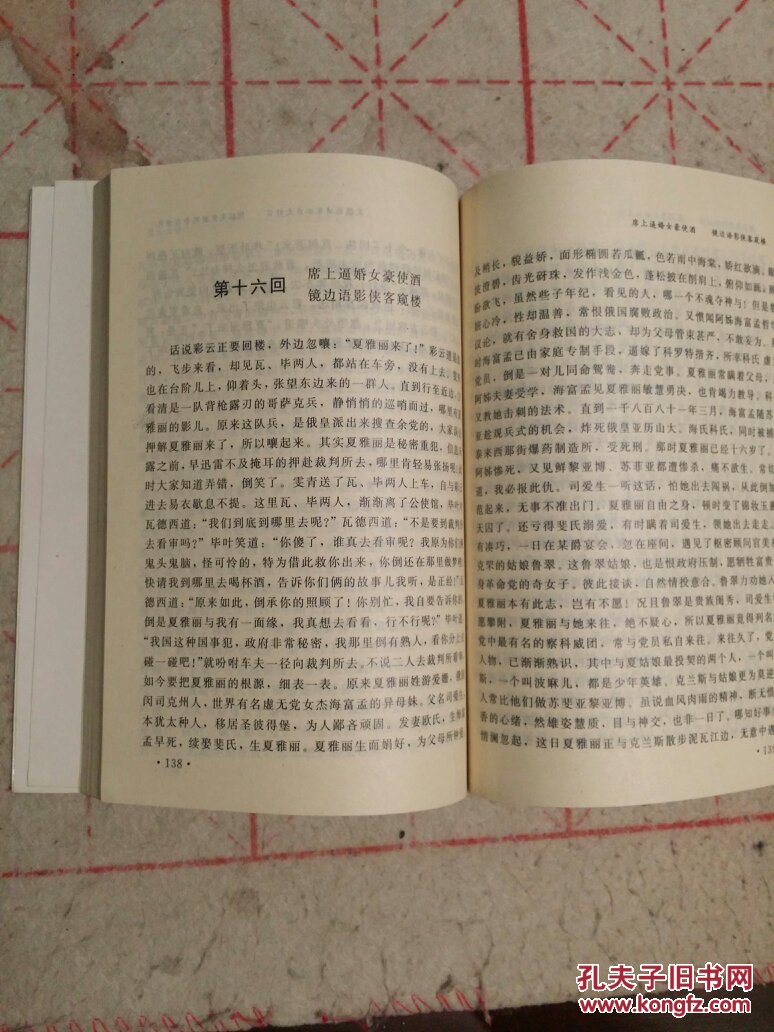 第十六回
席上逼婚女豪使酒
镜边语影侠客窥楼
话说彩云正要回楼，外边忽嚷：“夏雅丽来了！”彩云
的，飞步来看，却见瓦、毕两人，都站在车旁，没有上去。
也在台阶儿上，仰着头，张望东边来的一群人。直到行至近边
看清是一队背枪露刃的哥萨克兵，静悄悄的巡哨而过，那有
雅丽的影儿。原来这队兵，是俄皇派出来搜查余党的，大家
押解夏雅丽来了，所以嚷起来。其实夏雅丽是秘密重犯，信息
露之前，早迅雷不及掩耳的押赴裁判所去，哪里肯轻易张扬呢
时大家知道弄错，倒笑了。雯青送了瓦、毕两人上车，自与彩
进去易衣歇息不提。这里瓦、毕两人，渐渐离了公使馆，毕叶
瓦德西道：“我们到底到哪里去呢？”瓦德西道：“不是要到裁判
去看审吗？”毕叶笑道：“你傻了，谁真去看审呢？我原为你们
鬼头鬼脑，怪可怜的，特为借此救你出来，你倒还在那里做梦
快请我到哪里去喝杯酒，告诉你们俩的故事儿我听，是正经！”
德西道：“原来如此，倒承你的照顾了！你别忙，我自要告诉你
倒是夏雅丽与我有一面缘，我真想去看看，行不行呢？”毕叶道
“我国这种国事犯，政府非常秘密，我那里倒有熟人，看你分上
碰一碰吧！”就吩咐车夫一径向裁判所去。不说二人去裁判所看
如今要把夏雅丽的根源，细表一表。原来夏雅丽姓游爱珊，俄
闵司克州人，世界有名虚无党女杰海富孟的异母妹。父名司爱生
本犹太种人，移居圣彼得堡，为人鄙吝顽固。发妻欧氏，生海富
孟早死，续娶斐氏，生夏雅丽。夏雅丽生而娟好，为父母所钟
·138·
席上逼婚女豪使酒 镜边语影侠客窥楼
及稍长，貌益娇，面形椭圆若瓜瓤，色若雨中海棠，娇红欲滴。
波澄碧，齿光砑珠，发作浅金色，蓬松披在削肩上，俯仰如画，
盼欲飞，虽然些子年纪，看见的人，哪一个不魂夺神与！但是
娇心冷，性却温善，常恨俄国腐败政治。又惯闻阿姊海富孟哲
议论，就有舍身救国的大志，却为父母管束甚严，不敢妄为。
时海富孟已由家庭专制手段，逼嫁了科罗特揩齐，所幸科氏
党员，倒是一对儿同命鸳鸯，奔走党事。夏雅丽常瞒着父母，
阿姊夫妻受学，海富孟见夏雅丽敏慧勇决，也肯竭力教导。科
又教她击刺的法术。直到一千八百八十一年三月，海富孟随苏
亚趁观兵式的机会，炸死俄皇亚历山大。海氏科氏，同时被捕
泰来西那街爆药制造所，受死刑。那时夏雅丽已经十六岁了，
阿姊惨死，又见鲜黎亚博、苏菲亚都遭惨杀，痛不欲生，常切
道，我必报此仇。司爱生一听这话，怕她出去闯祸，从此倒加
范起来，无事不准出门。夏雅丽自由之身，顿时变了锦妆玉裹
天囚了。还亏得斐氏溺爱，有时瞒着司爱生，领她出去走走。
有凑巧，一日在某爵宴会，忽在座间，遇见了枢密顾问官美礼
克罘的姑娘鲁翠。这鲁翠姑娘，也是恨政府压制，愿牺牲富贵
身革命党的奇女子。彼此接谈，自然情投意合，鲁翠力劝她入
夏雅丽本有此志，岂有不愿！况且鲁翠是贵族闺秀，司爱生
愿攀附，夏雅丽与她来往，绝不疑心，所以夏雅丽竟得列名
党中最有名的察科威团，常与党员私自来往。来往久了，党
人物，已渐渐熟识，其中与夏姑娘最投契的两个人，一个叫
斯，一个叫波麻儿，都是少年英雄。克兰斯与姑娘更为莫逆
人常比他们做苏菲亚黎亚博。虽说血风肉雨的精神，断无惜
香的心绪，然雄姿慧质，目与神交，也非一日了。哪知好事
情澜忽起，这日夏雅丽正与克兰斯散步泥瓦江边，无意中遇
孔夫子旧书网
www.kongfz.com